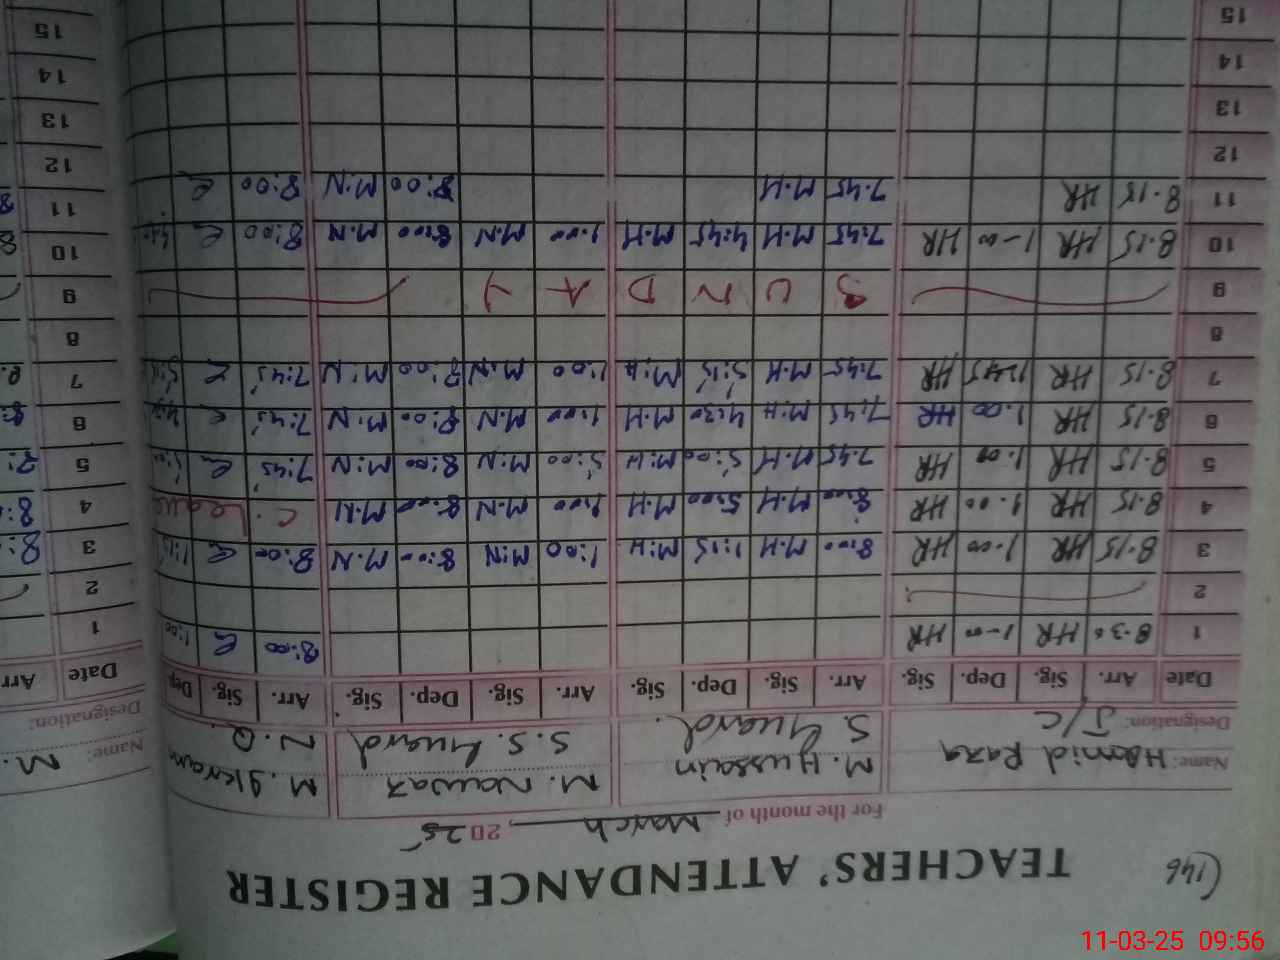 (146
TEACHERS' ATTENDANCE REGISTER
For the month of March, 2025
Name: Hamid Raza M. Hussain M. Nawaz M. Ikram
Designation: J/C S. Guard. S. S. Guard N.Q.
Date Arr. Sig. Dep. Sig. Arr. Sig. Dep. Sig. Arr. Sig. Dep. Sig. Arr. Sig. Dep
1 8.30 HR 1-00 HR 8:00 1:00
2
3 8.15 HR 1.00 HR 8:00 M.H 1:15 M:H 1:00 M:N 8:00 M.N 8:00 1:15
4 8.15 HR 1.00 HR 8:00 M.H 5:00 M.H 1:00 M.N 8:00 M.N C. Leave
5 8.15 HR 1.00 HR 7:45 M.H 5:00 M:H 5:00 M:N 8:00 M:N 7:45
6 8.15 HR 1.00 HR 7:45 M.H 4:30 M.H 1:00 M.N 8:00 M:N 7:45
7 8.15 HR 12.45 HR 7:45 M.H 5:15 M:H 1:00 M:N 8:00 M:N 7:45
8
9 S U N D A Y
10 8.15 HR 1-00 HR 7:45 M.H 4:45 M.H 1:00 M.N 8:00 M.N 8:00
11 8.15 HR 7:45 M.H 8:00 M:N 8:00
12
13
14
15
Name: M.
Designation:
Date Arr
1
2
3
4
5
6
7
8
9
10
11
12
13
14
15
11-03-25 09:56